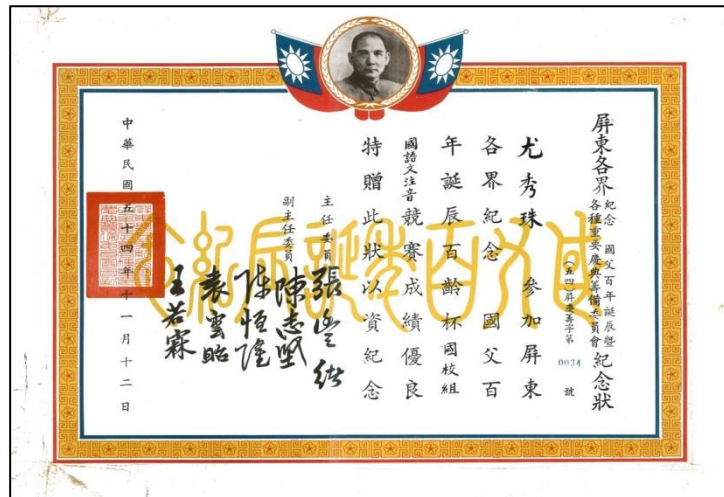 屏東各界紀念 國父百年誕辰暨各種重要慶典籌備委員會紀念狀
(五四)屏慶籌字第 0034 號
尤秀珠 參加屏東
各界紀念 國父百
年誕辰百齡杯國校組
國語文注音競賽成績優良
特贈此狀以資紀念
主任委員 張豐緒
副主任委員 陳志堅
陳恒隆
袁雲昭
王若霖
中華民國五十四年十一月十二日
國父百年誕辰紀念